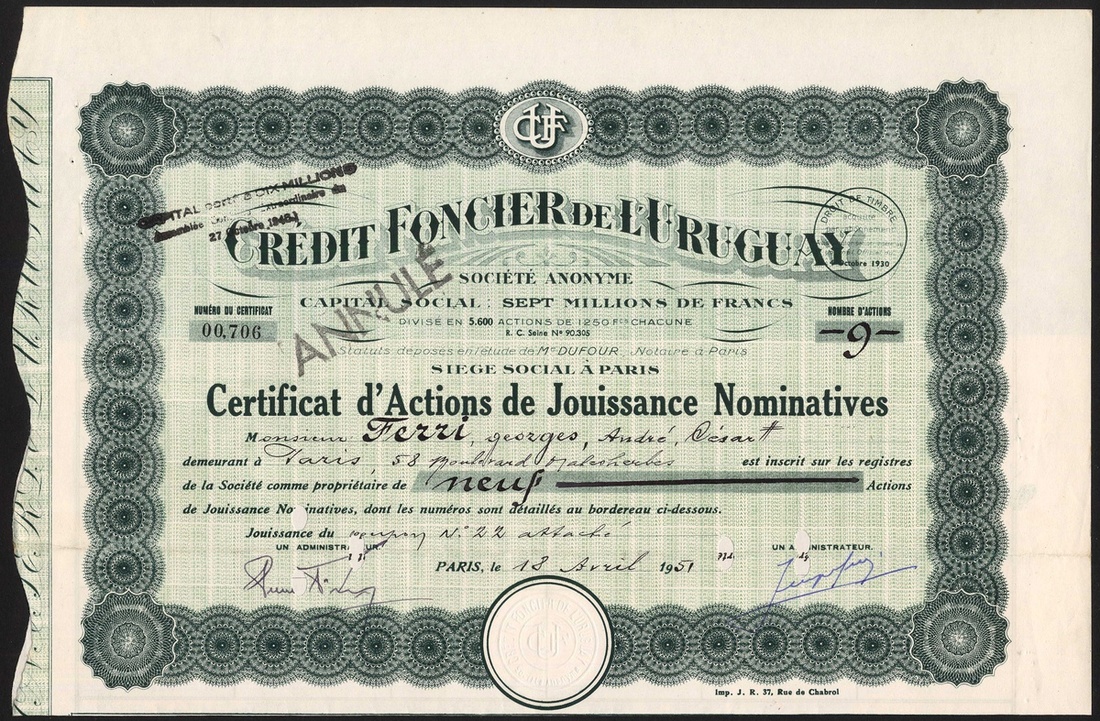 CUF
CAPITAL porté à DIX MILLIONS
Assemblée Extraordinaire du
27 Octobre 1948
CREDIT FONCIER DE L'URUGUAY
DROIT DE TIMBRE
Octobre 1930
SOCIÉTÉ ANONYME
ANNULÉ
CAPITAL SOCIAL : SEPT MILLIONS DE FRANCS
NUMÉRO DU CERTIFICAT
00,706
DIVISÉ EN 5.600 ACTIONS DE 1250 FCS CHACUNE
NOMBRE D'ACTIONS
-9-
R. C. Seine No 90.305
Statuts déposés en l'étude de Me DUFOUR, Notaire à Paris
SIEGE SOCIAL À PARIS
Certificat d'Actions de Jouissance Nominatives
Monsieur Ferri, Georges, André, César
demeurant à Paris, 58 Boulevard Malesherbes est inscrit sur les registres
de la Société comme propriétaire de neuf Actions
de Jouissance Nominatives, dont les numéros sont détaillés au bordereau ci-dessous.
Jouissance du coupon No 22 attaché
UN ADMINISTRATEUR.
UN ADMINISTRATEUR.
PARIS, le 13 Avril 1951
CUF
Imp. J. R. 37, Rue de Chabrol